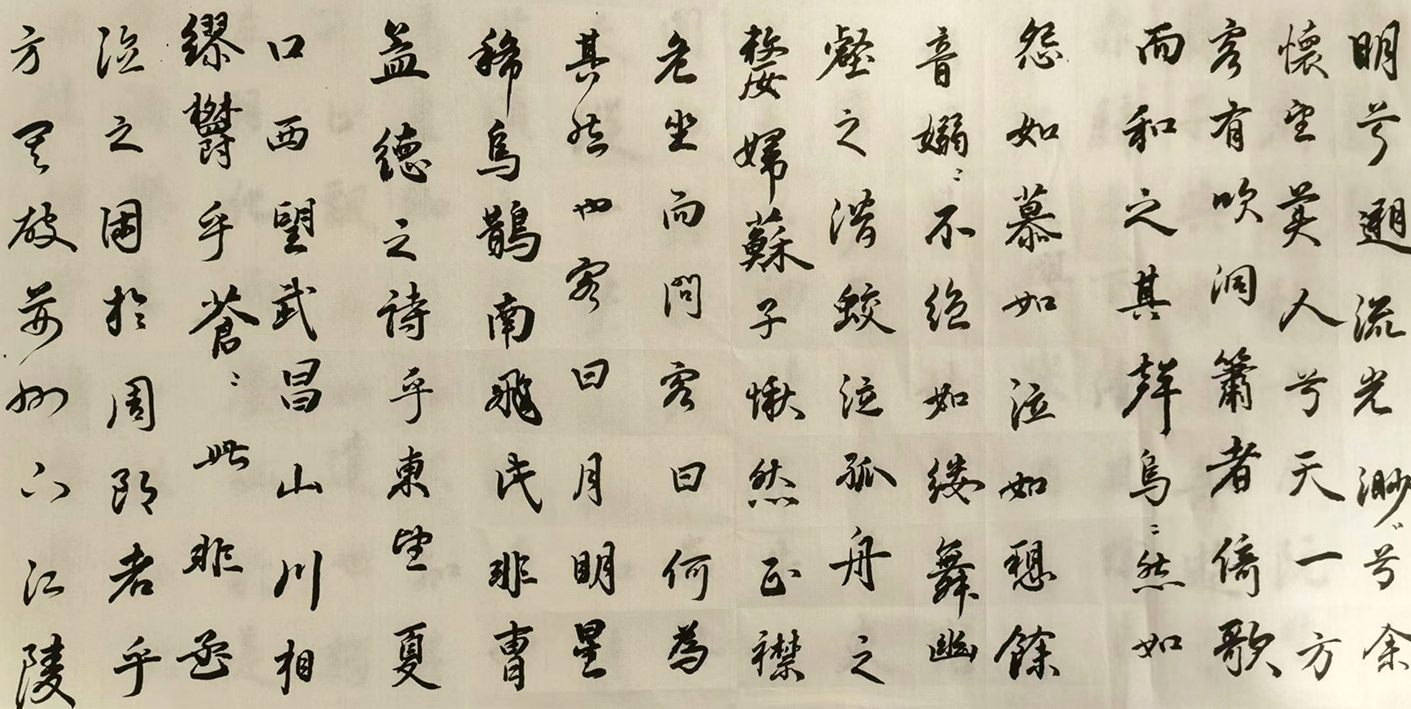 明兮遡流光渺〻兮余
懷望美人兮天一方
客有吹洞簫者倚歌
而和之其聲烏〻然如
怨如慕如泣如愬餘
音嫋〻不絕如縷舞幽
壑之潛蛟泣孤舟之
嫠婦蘇子愀然正襟
危坐而問客曰何為
其然也客曰月明星
稀烏鵲南飛此非曹
孟德之詩乎東望夏
口西望武昌山川相
繆鬱乎蒼〻此非孟
德之困於周郎者乎
方其破荊州下江陵